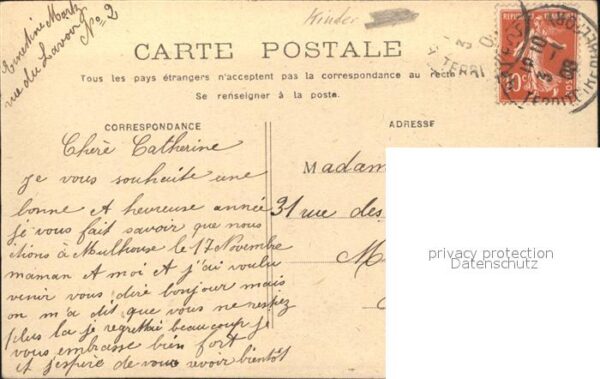 Ernestine Martz
rue du Lavoir
No 2
Kinder
CARTE POSTALE
Tous les pays étrangers n'acceptent pas la correspondance au recto
Se renseigner à la poste.
CORRESPONDANCE
Chère Catherine
je vous souhaite une
bonne et heureuse année
je vous fait savoir que nous
étions à Mulhouse le 17 Novembre
maman et moi et j'ai voulu
venir vous dire bonjour mais
on m'a dit que vous ne restez
plus la je regrettai beaucoup je
vous embrasse bien fort
et j'espère de vous revoir bientôt
ADRESSE
Madam
31 rue des
M
privacy protection
Datenschutz